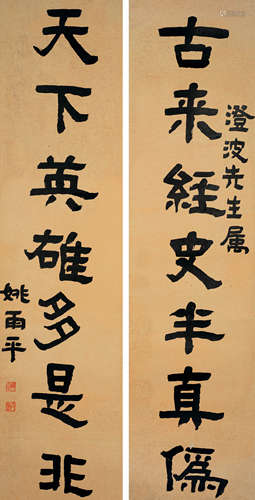 澄波先生属
古来经史半真偽
天下英雄多是非
姚雨平